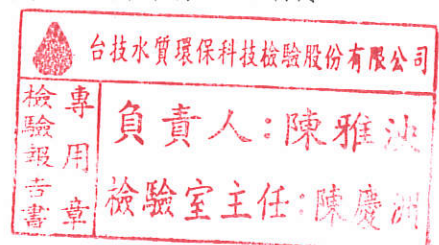 台技水質環保科技檢驗股份有限公司
檢驗報告書
專用章
負責人:陳雅
檢驗室主任:陳慶